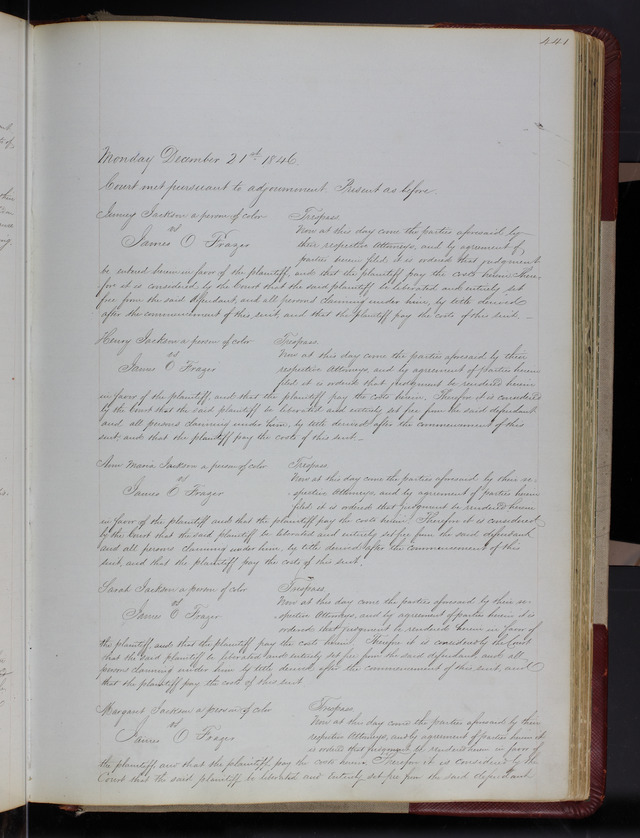 441
Monday December 21st 1846
Court met pursuant to adjournment Present as before.
Jenny Jackson a person of color Trespass
vs Now at this day come the parties aforesaid by
James O Frazer their respective Attorneys, and by agreement of
parties herein filed it is ordered that judgment
be entered herein in favor of the plaintiff, and that the plaintiff pay the costs herein There-
fore it is considered by the Court that the said plaintiff be liberated and entirely set
free from the said defendant, and all persons claiming under him, by title derived
after the commencement of this suit, and that the plaintiff pay the costs of this suit. –
Henry Jackson a person of color Trespass
vs Now at this day come the parties aforesaid by their
James O Frazer respective Attorneys, and by agreement of parties herein
filed it is ordered that judgment be rendered herein
in favor of the plaintiff and that the plaintiff pay the costs herein. Therefore it is considered
by the Court that the said plaintiff be liberated and entirely set free from the said defendant
and all persons claiming under him, by title derived after the commencement of this
suit, and that the plaintiff pay the costs of this suit. –
Ann Maria Jackson a person of color Trespass
vs Now at this day come the parties aforesaid by their re-
James O Frazer spective Attorneys, and by agreement of parties herein
filed it is ordered that judgment be rendered herein
in favor of the plaintiff and that the plaintiff pay the costs herein. Therefore it is considered
by the Court that the said plaintiff be liberated and entirely set free from the said defendant
and all persons claiming under him, by title derived after the commencement of this
suit, and that the plaintiff pay the costs of this suit.
Sarah Jackson a person of color Trespass
vs Now at this day come the parties aforesaid by their re-
James O Frazer spective Attorneys, and by agreement of parties herein it is
ordered that judgment be rendered herein in favor of
the plaintiff, and that the plaintiff pay the costs herein. Therefore it is considered by the Court
that the said plaintiff be liberated and entirely set free from the said defendant, and all
persons claiming under him by title derived after the commencement of this suit, and
that the plaintiff pay the costs of this suit
Margaret Jackson a person of color Trespass
vs Now at this day come the parties aforesaid by their
James O Frazer respective Attorneys, and by agreement of parties herein it
is ordered that judgment be rendered herein in favor of
the plaintiff, and that the plaintiff pay the costs herein. Therefore it is considered by the
Court that the said plaintiff be liberated and entirely set free from the said defendant